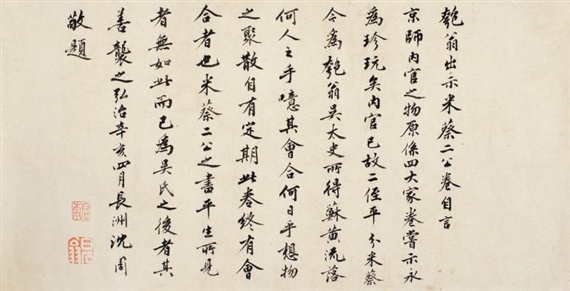 匏翁出示米蔡二公卷自言
京師內官之物原係四大家卷嘗示永
為珍玩矣內官已故二侄平分米蔡
今為匏翁吳太史所得蘇黃流落
何人之手噫其會合何日乎想物
之聚散自有定期此卷終有會
合者也米蔡二公之書平生所見
者無如此而已為吳氏之後者其
善襲之弘治辛亥四月長洲沈周
敬題